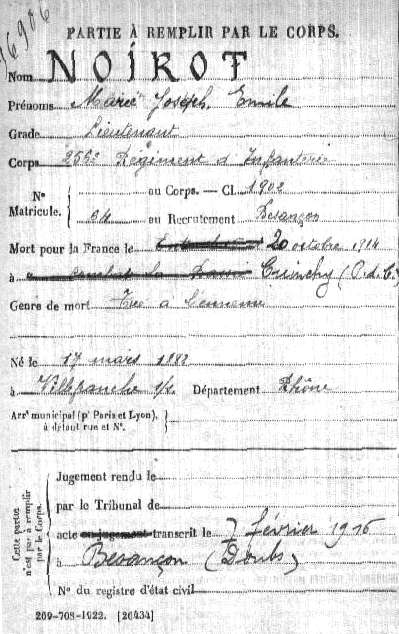 PARTIE À REMPLIR PAR LE CORPS.
Nom NOIROT
Prénoms Marie Joseph Emile
Grade Lieutenant
Corps 256e Régiment d'Infanterie
No Matricule. { au Corps. — Cl. 1902
84 au Recrutement Besançon
Mort pour la France le 20 octobre 1914
à Cuinchy (P. d. C.)
Genre de mort Tué à l'ennemi
Né le 17 mars 1882
à Villefranche s/s. Département Rhône
Arrt municipal (pr Paris et Lyon),
à défaut rue et No.
Cette partie n'est pas à remplir par le Corps.
Jugement rendu le
par le Tribunal de
acte ou jugement transcrit le 7 février 1916
à Besançon (Doubs)
No du registre d'état civil
269-708-1922. [26434]